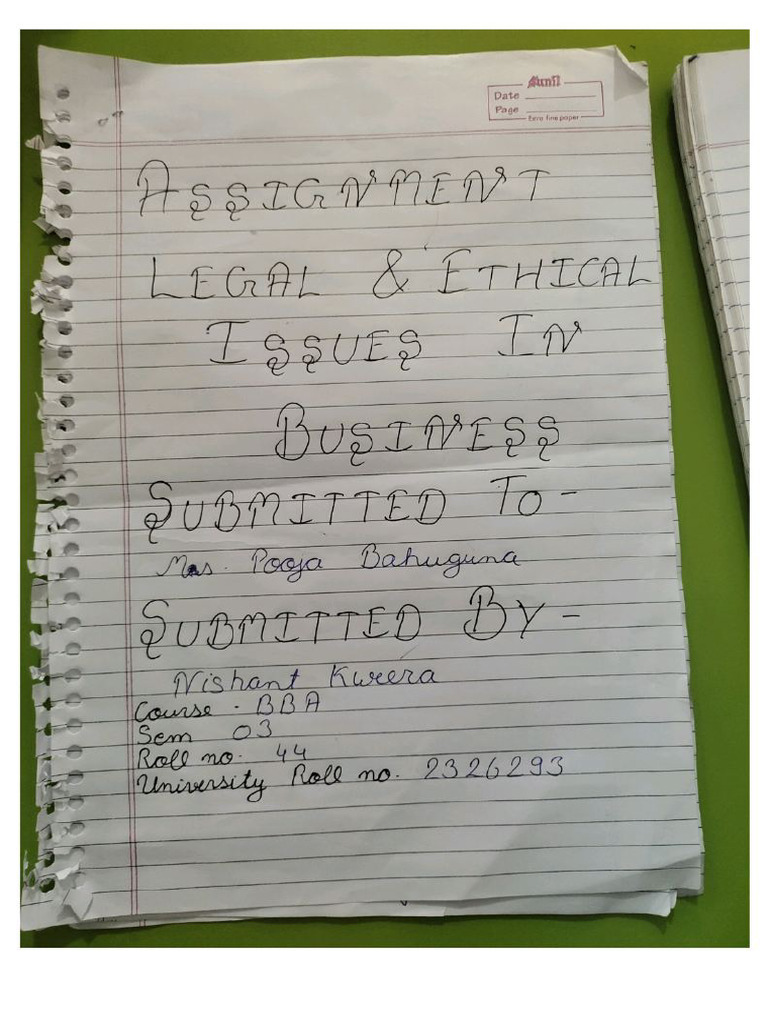 Sunil
Date
Page
Eero fine paper
ASSIGNMENT
LEGAL & ETHICAL
ISSUES IN
BUSINESS
SUBMITTED TO -
Mrs. Pooja Bahuguna
SUBMITTED BY -
Nishant Kweera
Course - BBA
Sem 03
Roll no. 44
University Roll no. 2326293